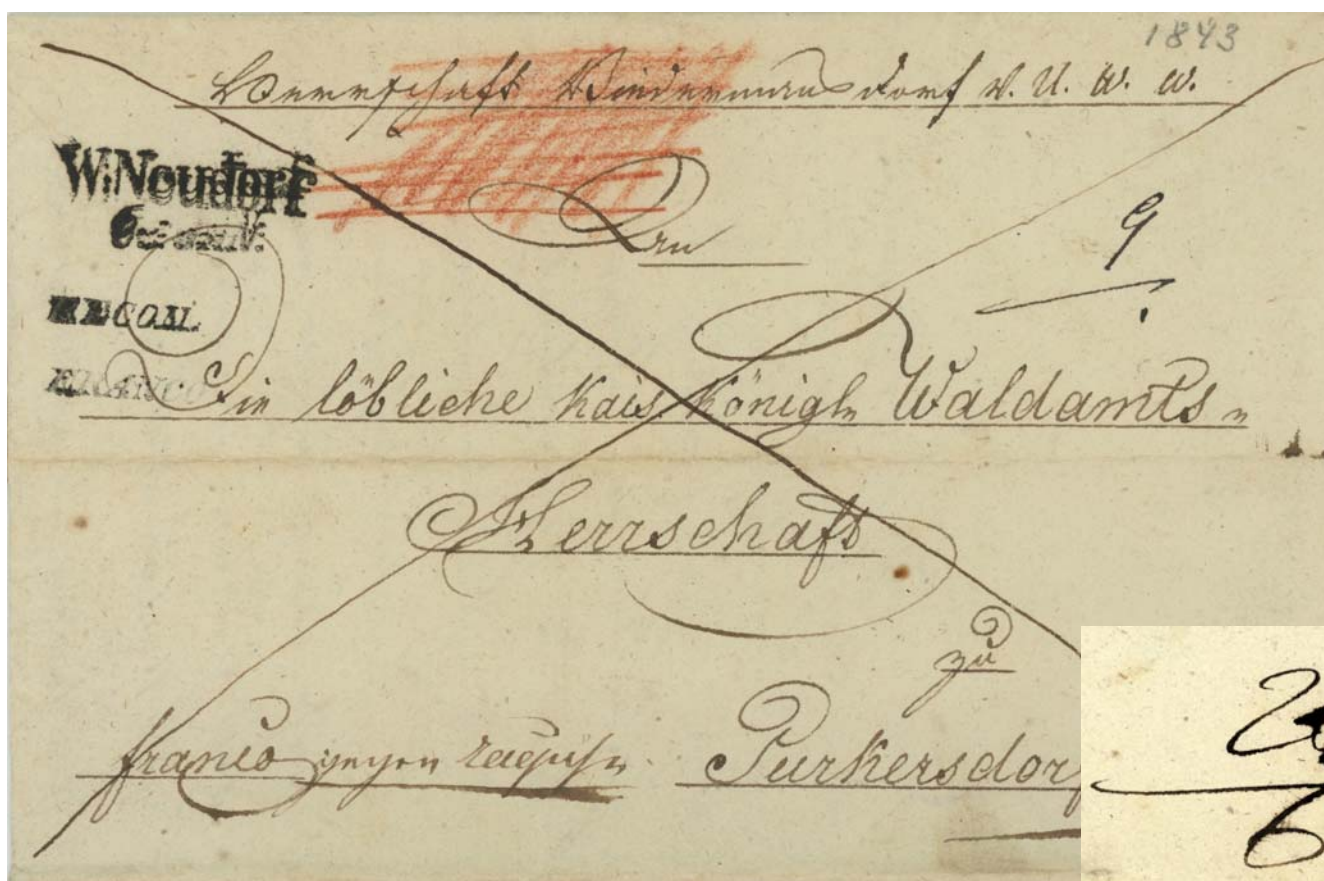 1843
Herrschaft Biedermansdorf V. U. W. W.
W:Neudorf
An
9
RECOM.
FRANCO
Die löbliche Kais. Königl. Waldamts-
Herrschaft
zu
franco gegen Purkersdorf
6